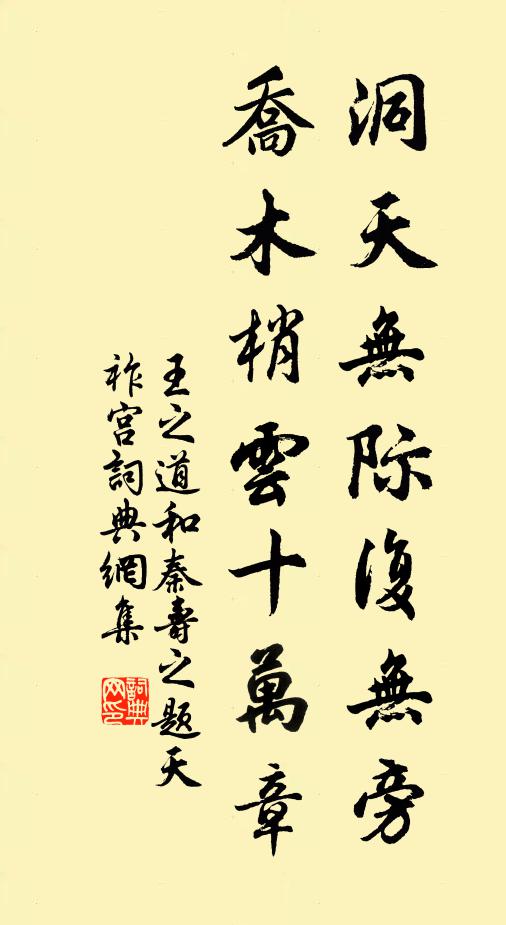 洞天無际復無旁
喬木梢雲十萬章
王之道和秦壽之題天
祚宫詞典網集
詞典網印